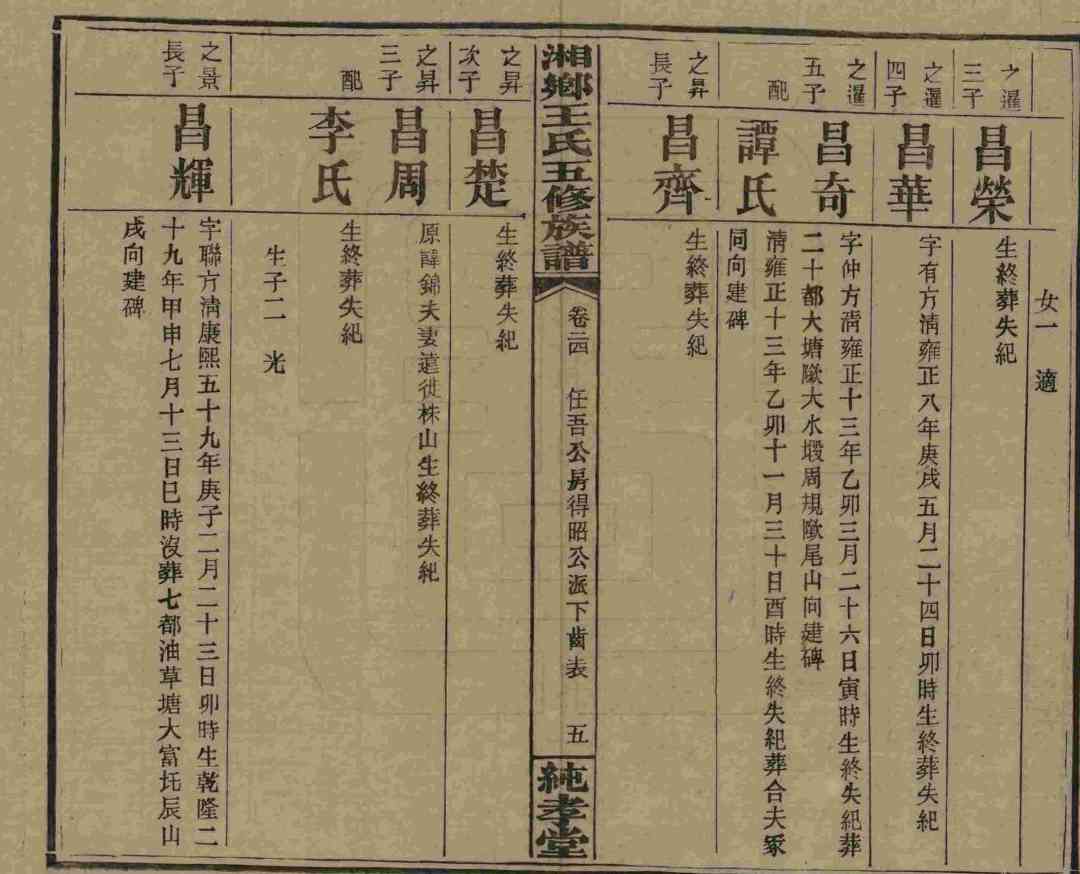 女一 適
之暹
三子
昌榮
生終葬失紀
之暹
四子
昌華
字有方清雍正八年庚戌五月二十四日卯時生終葬失紀
之暹
五子
昌奇
字仲方清雍正十三年乙卯三月二十六日寅時生終失紀葬
二十都大塘墩大水塅周規墩尾山向建碑
配
譚氏
清雍正十三年乙卯十一月三十日酉時生終失紀葬合夫冢
同向建碑
之昇
長子
昌齊
生終葬失紀
湘鄉王氏五修族譜
卷二四 任吾公房得昭公派下齒表 五
純孝堂
之昇
次子
昌楚
生終葬失紀
之昇
三子
昌周
原諱錦夫妻遠徙株山生終葬失紀
配
李氏
生終葬失紀
生子二 光
之景
長子
昌輝
字聯方清康熙五十九年庚子二月二十三日卯時生乾隆二
十九年甲申七月十三日巳時沒葬七都油草塘大富坉辰山
戌向建碑